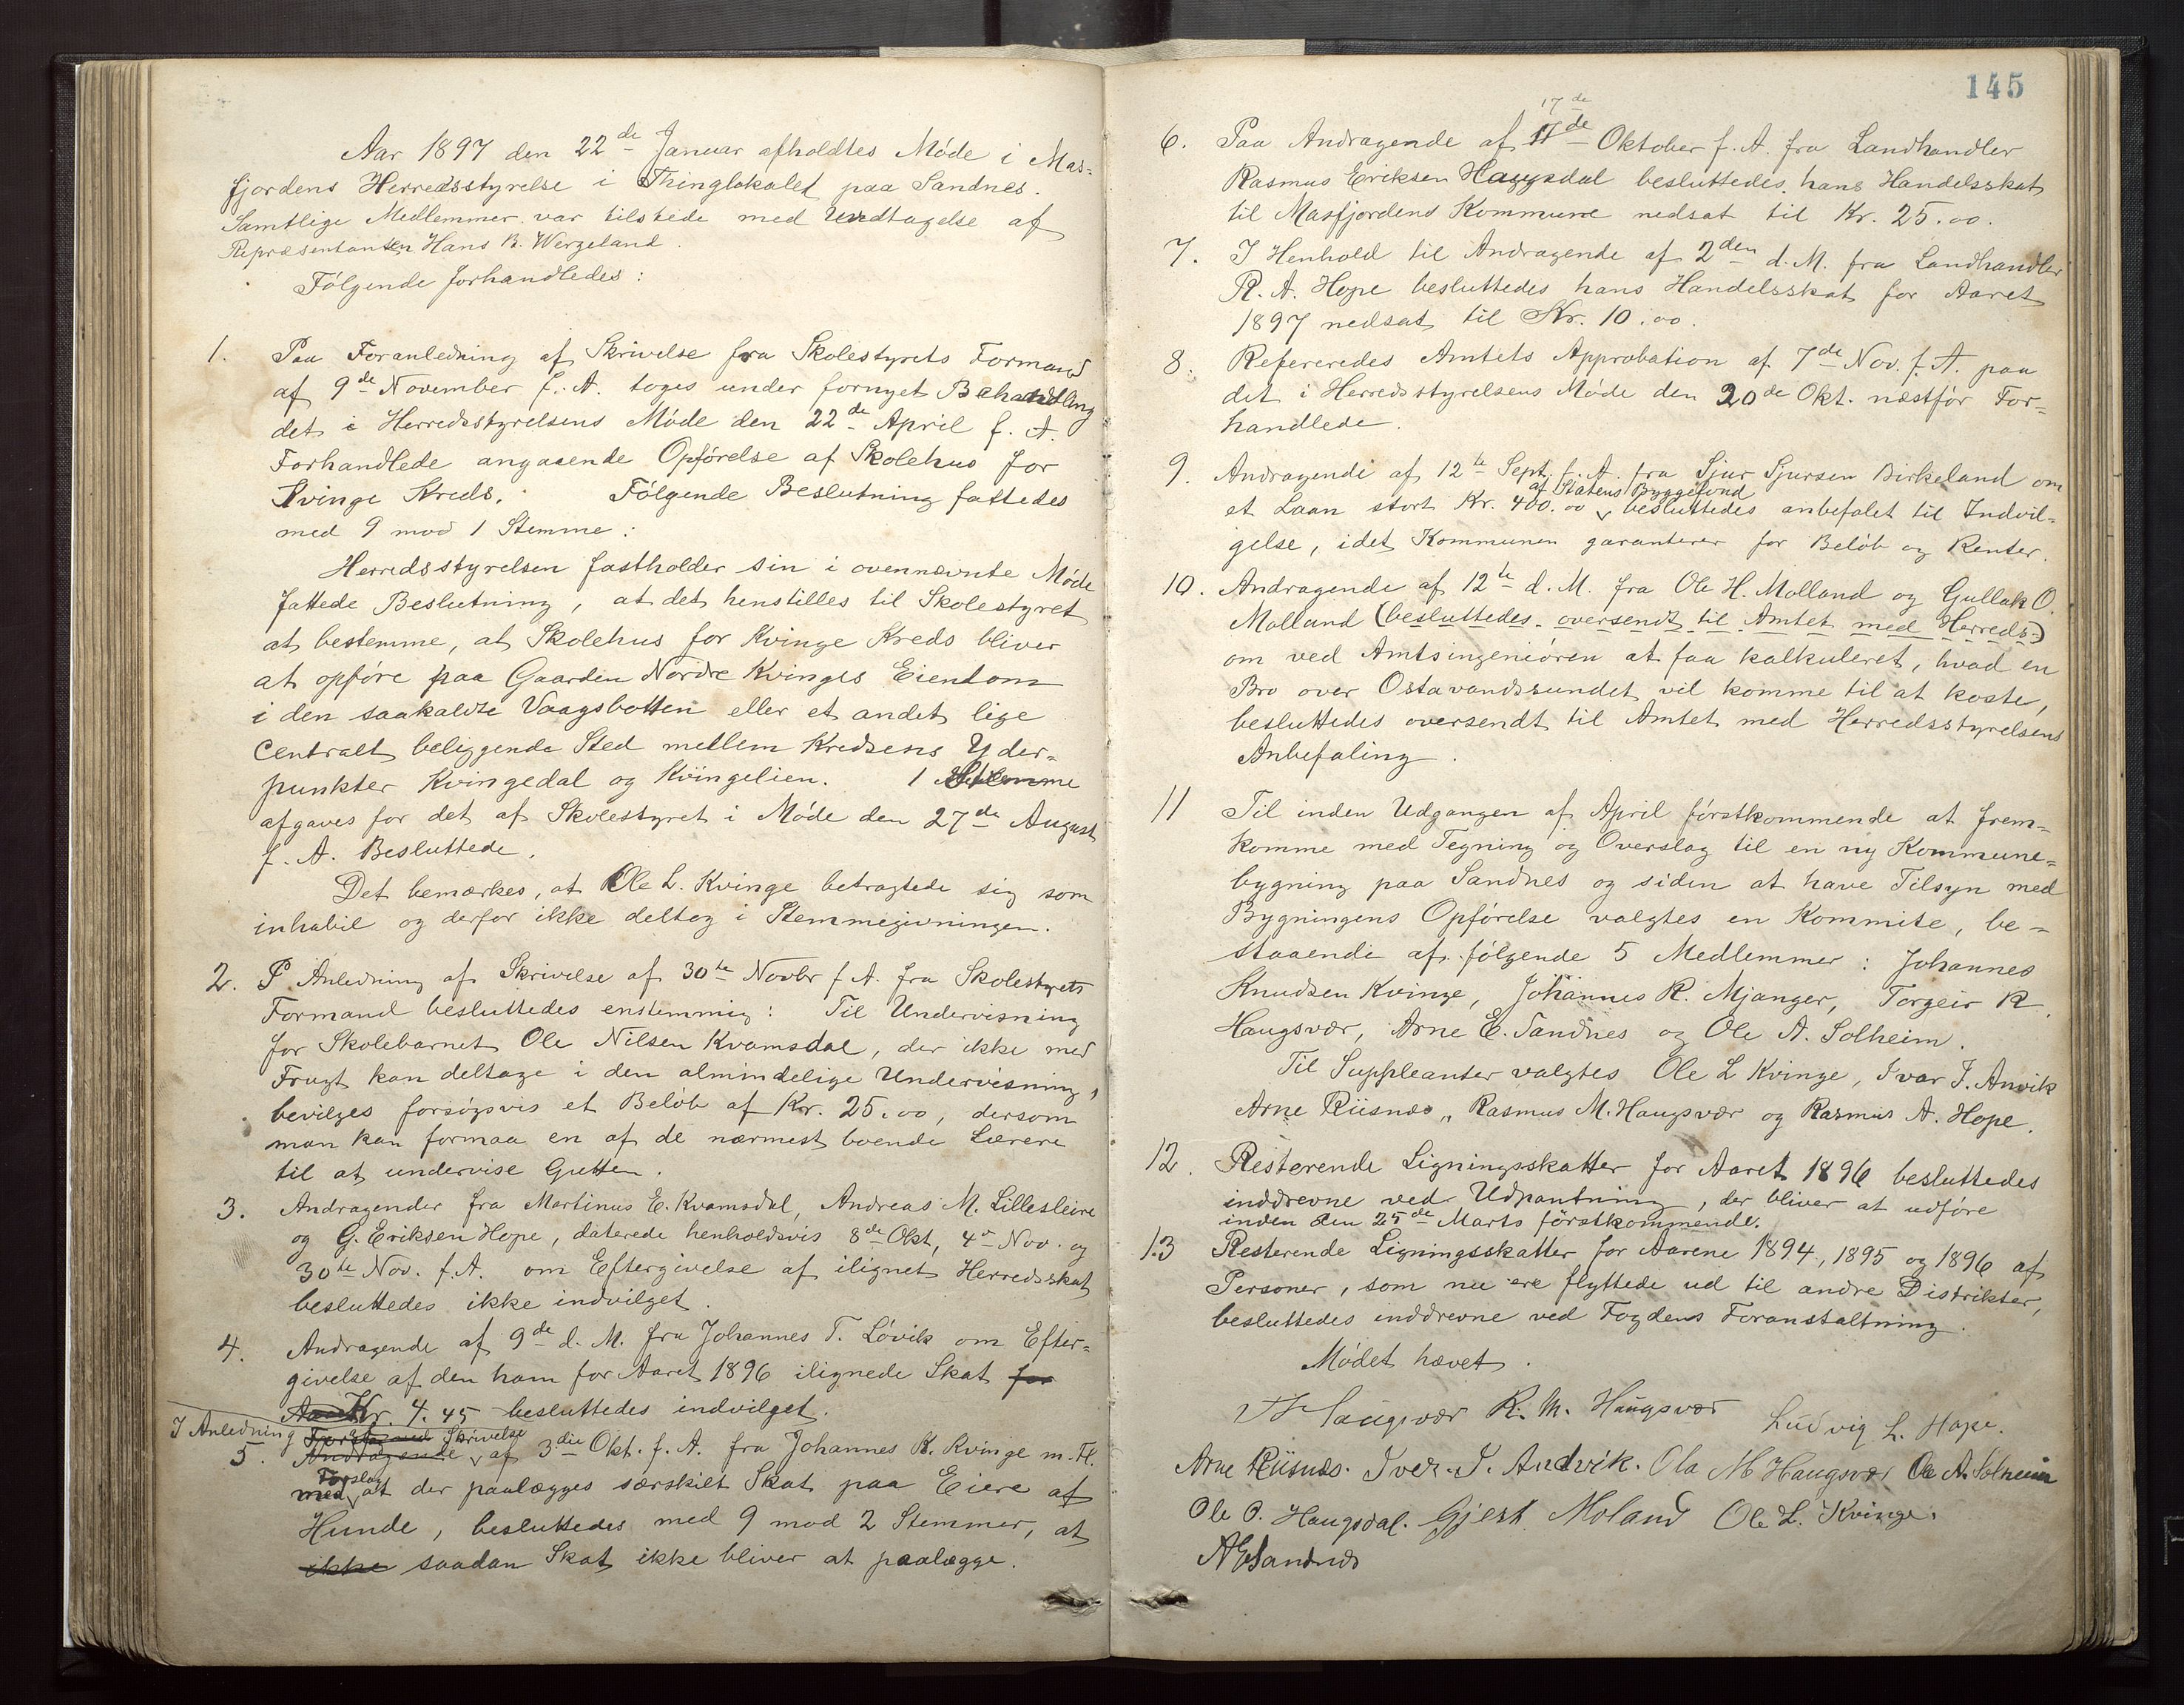 Aar 1897 den 22de Januar afholdtes Møde i Mas-
fjordens Herredsstyrelse i Thinglokalet paa Sandnes.
Samtlige Medlemmer var tilstede med Undtagelse af
Repræsentanten Hans B. Wergeland.
Følgende forhandledes:
1. Paa Foranledning af Skrivelse fra Skolestyrets Formand
af 9de November f. A. toges under fornyet Behandling
det i Herredsstyrelsens Møde den 22de April f. A.
Forhandlede angaaende Opførelse af Skolehus for
Kvinge Kreds. Følgende Beslutning fattedes
med 9 mod 1 Stemme:
Herredsstyrelsen fastholder sin i ovennævnte Møde
fattede Beslutning, at det henstilles til Skolestyret
at bestemme, at Skolehus for Kvinge Kreds bliver
at opføre paa Gaarden Nordre Kvinges Eiendom
i den saakaldte Vaagsbotten eller et andet lige
centralt beliggende Sted mellem Kredsens Yder-
punkter Kvingedal og Kvingelien. 1 Stemme
afgaves for det af Skolestyret i Møde den 27de August
f. A. Besluttede.
Det bemærkes, at Ole L. Kvinge betragtede sig som
inhabil og derfor ikke deltog i Stemmegivningen.
2. I Anledning af Skrivelse af 30te Novbr f. A. fra Skolestyrets
Formand besluttedes enstemmig: Til Undervisning
for Skolebarnet Ole Nilsen Kvamsdal, der ikke med
Frugt kan deltage i den almindelige Undervisning,
bevilges forsøgsvis et Beløb af Kr. 25.00, dersom
man kan formaa en af de nærmest boende Lærere
til at undervise Gutten.
3. Andragender fra Martinus E. Kvamsdal, Andreas M. Lillesleire
og G. Eriksen Hope, daterede henholdsvis 8de Okt, 4de Nov. og
30te Nov. f. A. om Eftergivelse af ilignet Herredsskat
besluttedes ikke indvilget.
4. Andragende af 9de d. M. fra Johannes T. Løvik om Efter-
givelse af den ham for Aaret 1896 ilignede Skat for
Aaret Kr. 4.45 besluttedes indvilget.
I Anledning af Skrivelse
5. Andragende af 3die Okt. f. A. fra Johannes K. Kvinge m. Fl.
Forslag
med at der paalægges særskilt Skat paa Eiere af
Hunde, besluttedes med 9 mod 2 Stemmer, at
ikke saadan Skat ikke bliver at paalægge.
145
17de
6. Paa Andragende af 17de Oktober f. A. fra Landhandler
Rasmus Eriksen Haugsdal besluttedes hans Handelsskat
til Masfjordens Kommune nedsat til Kr. 25.00.
7. I Henhold til Andragende af 2den d. M. fra Landhandler
R. A. Hope besluttedes hans Handelsskat for Aaret
1897 nedsat til Kr. 10.00.
8. Refereredes Amtets Approbation af 7de Nov. f. A. paa
det i Herredsstyrelsens Møde den 20de Okt. næstfør For-
handlede.
9. Andragende af 12te Sept. f. A. fra Sjur Sjursen Birkeland om
af Statens Byggefond
et Laan stort Kr. 400.00 besluttedes anbefalet til Indvil-
gelse, idet Kommunen garanterer for Beløb og Renter.
10. Andragende af 12te d. M. fra Ole H. Molland og Gullak O.
Molland (besluttedes oversendt til Amtet med Herreds-)
om ved Amtsingeniøren at faa kalkuleret, hvad en
Bro over Ostavandssundet vil komme til at koste,
besluttedes oversendt til Amtet med Herredsstyrelsens
Anbefaling.
11 Til inden Udgangen af April førstkommende at frem-
komme med Tegning og Overslag til en ny Kommune-
bygning paa Sandnes og siden at have Tilsyn med
Bygningens Opførelse valgtes en Kommite, be-
staaende af følgende 5 Medlemmer: Johannes
Knudsen Kvinge, Johannes R. Mjanger, Torgeir R.
Haugsvær, Arne E. Sandnes og Ole A. Solheim.
Til Suppleanter valgtes Ole L Kvinge, Ivar I. Anvik
Arne Riisnes, Rasmus M. Haugsvær og Rasmus A. Hope.
12. Resterende Ligningsskatter for Aaret 1896 besluttedes
inddrevne ved Udpantning, der bliver at udføre
inden den 25de Marts førstkommende.
13 Resterende Ligningsskatter for Aarene 1894, 1895 og 1896 af
Personer, som nu ere flyttede ud til andre Distrikter,
besluttedes inddrevne ved Fogdens Foranstaltning.
Mødet hævet.
Haugsvær R. M. Haugsvær Ludvig L. Hope.
Arne Riisnes. Iver. I. Andvik. Ola M Haugsvær Ole A. Solheim
Ole O. Haugsdal. Gjest Moland Ole L. Kvinge.
A E Sandnes